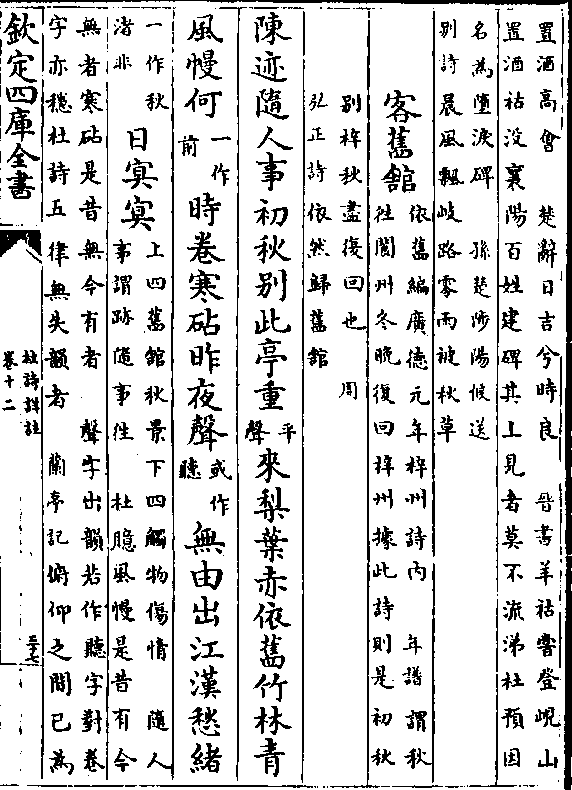 置酒高會　楚辭日吉兮時良　晉書羊祜嘗登峴山
置酒祜没襄陽百姓建碑其上見者莫不流涕杜預因
名為墮淚碑　孫楚陟陽候送
别詩晨風飄岐路零雨被秋草
客舊館
依舊編廣德元年梓州詩内　年譜謂秋
往閬州冬晚復回梓州據此詩則是初秋
别梓秋盡復回也　周
弘正詩依然歸舊館
陳迹隨人事初秋别此亭重平聲來梨葉赤依舊竹林青
風幔何一作前時卷寒砧昨夜聲或作聽無由出江漢愁緒
一作秋
渚非
日㝠㝠
上四舊館秋景下四觸物傷情　隨人
事謂跡隨事往　杜臆風幔是昔有今
無者寒砧是昔無今有者　聲字出韻若作聽字對卷
字亦穩杜詩五律無失韻者　蘭亭記俯仰之間已為
欽定四庫全書
杜詩詳註
卷十二
三十七